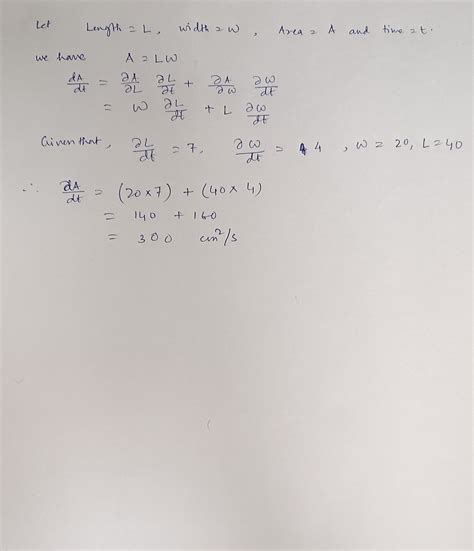 Let Length = L, width = w, Area = A and time = t.
we have A = LW
dA/dt = ∂A/∂L ∂L/∂t + ∂A/∂w ∂w/dt
= W ∂L/dt + L ∂w/dt
Given that, ∂L/dt = 7, ∂w/dt = 4, w = 20, L = 40
∴ dA/dt = (20 × 7) + (40 × 4)
= 140 + 160
= 300 cm²/s